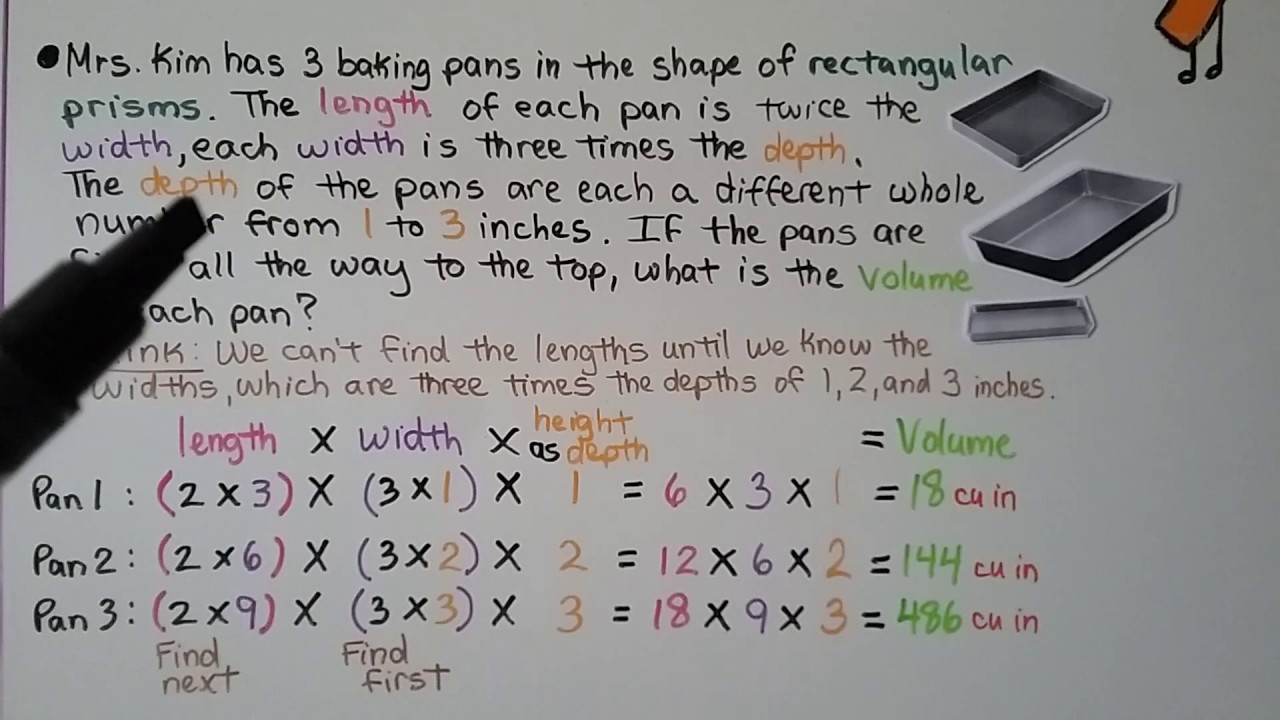 Mrs. Kim has 3 baking pans in the shape of rectangular
prisms. The length of each pan is twice the
width, each width is three times the depth.
The depth of the pans are each a different whole
from 1 to 3 inches. If the pans are
all the way to the top, what is the volume
pan?
We can't find the lengths until we know the
widths, which are three times the depths of 1, 2, and 3 inches.
length X width X height as depth = Volume
Pan 1: (2 x 3) X (3 x 1) X 1 = 6 X 3 X 1 = 18 cu in
Pan 2: (2 x 6) X (3 x 2) X 2 = 12 X 6 X 2 = 144 cu in
Pan 3: (2 x 9) X (3 x 3) X 3 = 18 X 9 X 3 = 486 cu in
Find next Find first